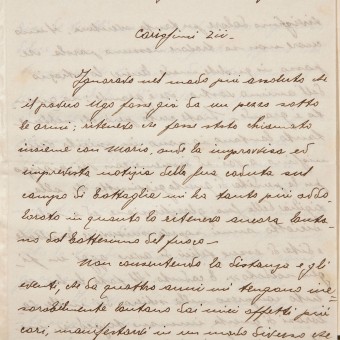 Carissimi Zii -
Ignaravo nel modo più assoluto che
il povero Ugo fosse già da un pezzo sotto
le armi; ritenevo che fosse stato chiamato
insieme con Mario, onde la improvvisa ed
imprevista notizia della sua caduta sul
campo di battaglia mi ha tanto più addo=
lorato in quanto lo ritenevo ancora lonta=
no dal battesimo del fuoco -
Non consentendo la distanza e gli
eventi, che da quattro anni mi tengono ine=
sorabilmente lontano dai miei affetti più
cari, manifestarvi in un modo diverso che